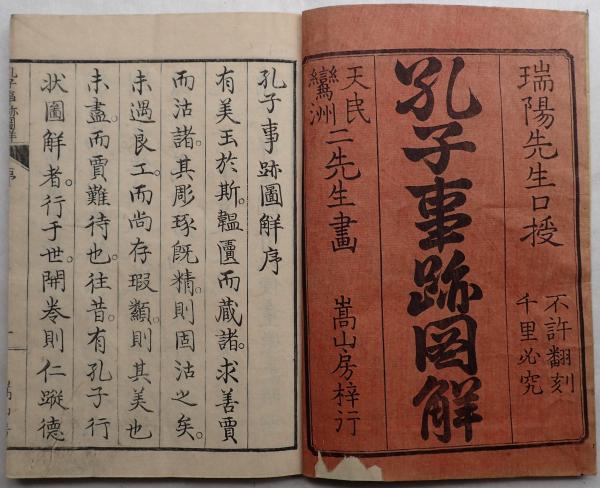 瑞陽先生口授
不許翻刻
千里必究
孔子事跡図解
天民
鸞洲
二先生畫
嵩山房梓行
孔子事跡圖解序
有美玉於斯。韞匵而藏諸。求善賈
而沽諸。其彫琢既精。則固沽之矣。
未遇良工。而尚存瑕纇。則其美也
未盡。而賈難待也。往昔。有孔子行
状圖解者。行于世。開卷則仁蹤德
孔子事跡圖解
序